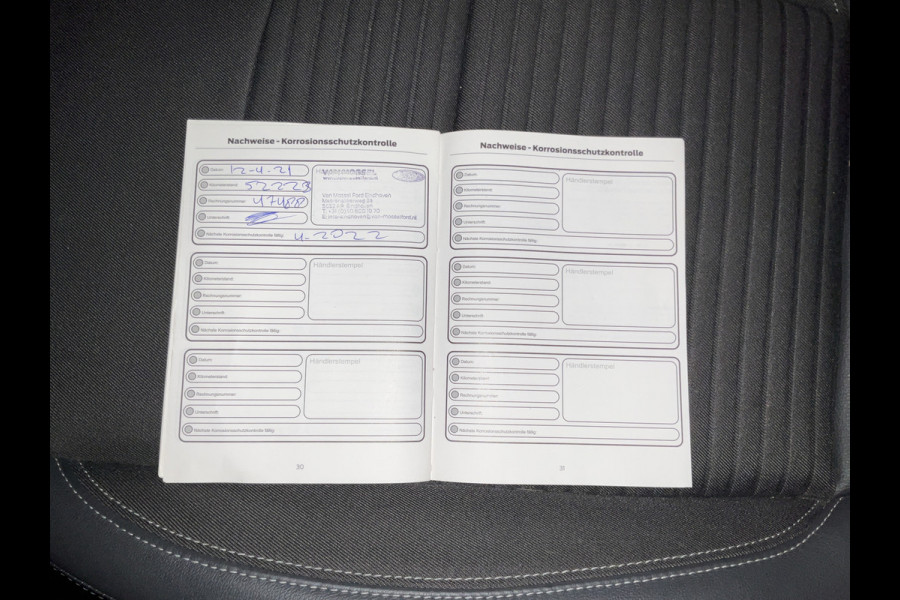 Nachweise - Korrosionsschutzkontrolle
Datum 12-4-21
Kilometerstand 52223
Rechnungsnummer 47488
Unterschrift
Van Mossel Ford Eindhoven
Nächste Korrosionsschutzkontrolle fällig: 4-2022
Datum
Kilometerstand
Rechnungsnummer
Unterschrift
Händlerstempel
Nächste Korrosionsschutzkontrolle fällig:
Datum
Kilometerstand
Rechnungsnummer
Unterschrift
Händlerstempel
Nächste Korrosionsschutzkontrolle fällig:
30
Nachweise - Korrosionsschutzkontrolle
Datum
Kilometerstand
Rechnungsnummer
Unterschrift
Händlerstempel
Nächste Korrosionsschutzkontrolle fällig:
Datum
Kilometerstand
Rechnungsnummer
Unterschrift
Händlerstempel
Nächste Korrosionsschutzkontrolle fällig:
Datum
Kilometerstand
Rechnungsnummer
Unterschrift
Händlerstempel
Nächste Korrosionsschutzkontrolle fällig:
31